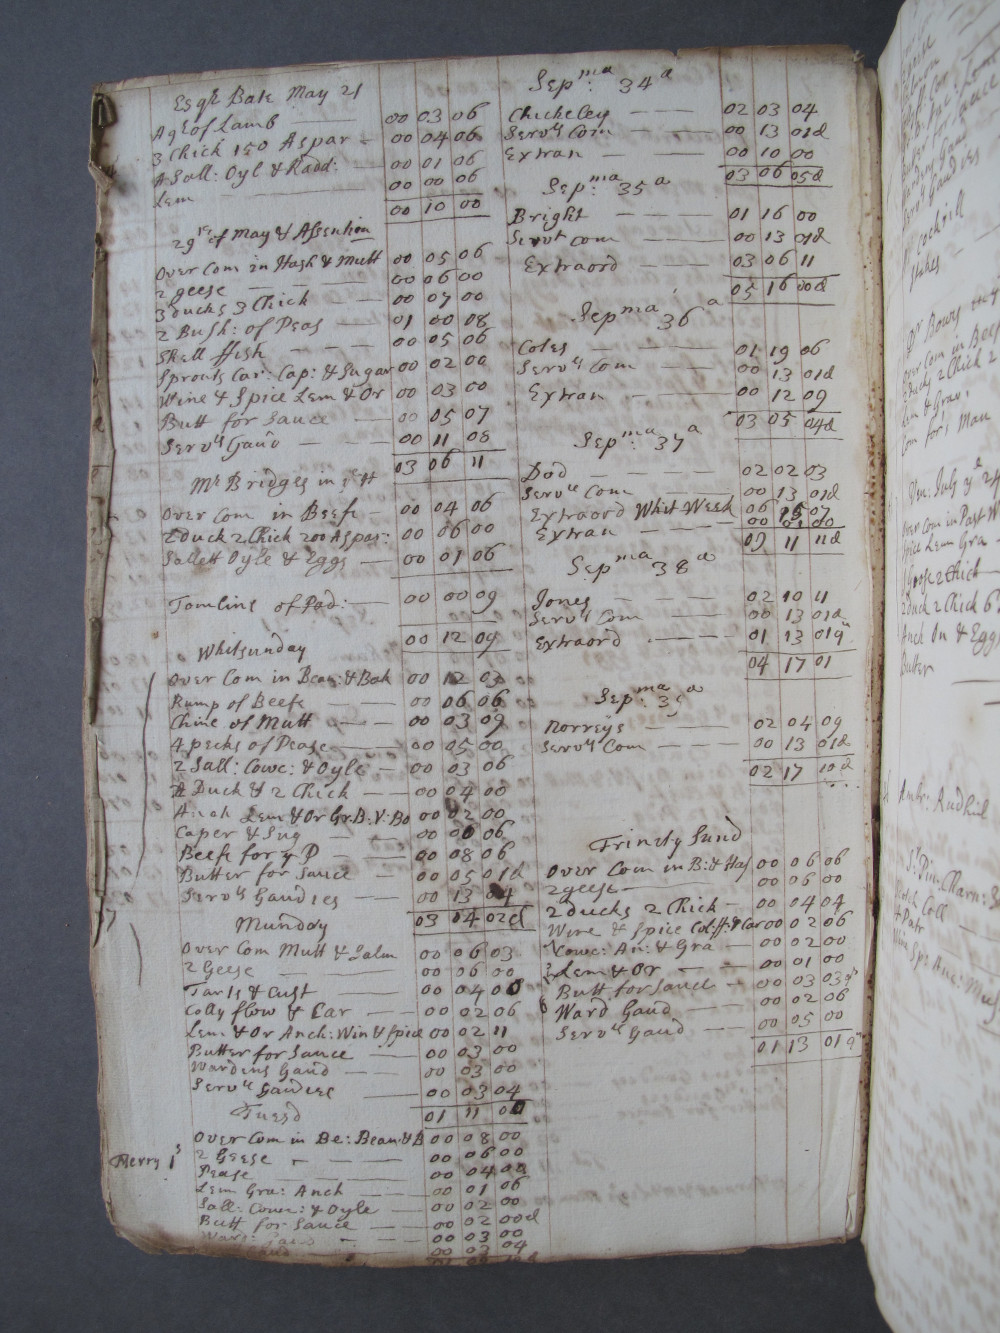 Esqr Bate May 21
A qr of Lamb 00 03 06
3 Chick 150 Aspar 00 04 06
A Sall: Oyl & Radd: 00 01 06
Lem 00 00 06
00 10 00
29th of May & Assention
Over Com in Hash & Mutt 00 05 06
2 geese 00 06 00
3 Ducks 3 Chick 00 07 00
2 Bush: of Peas 01 00 08
Shell ffish 00 05 06
Sprouts Car: Cap: & Sugar 00 02 00
Wine & Spice Lem & Or 00 03 00
Butt for Sauce 00 05 07
Servts Gaud 00 11 08
03 06 11
Mr Bridges in ye H
Over Com in Beefe 00 04 06
2 Duck 2 Chick 200 Aspar: 00 06 00
Sallett Oyle & Eggs 00 01 06
Tomlins of Pod: 00 00 09
00 12 09
Whitsunday
Over Com in Bean: & Bak 00 12 07
Rump of Beefe 00 06 06
Chine of Mutt 00 03 09
4 pecks of Pease 00 05 00
2 Sall: Cowc: & Oyle 00 03 06
2 Duck & 2 Chick 00 04 00
Anch Lem & Or Gr: B: V: Bo 00 02 00
Caper & Sug 00 00 06
Beefe for y P 00 08 06
Butter for Sauce 00 05 01d
Servts Gaudies 00 13 04
03 04 02d
Munday
Over Com Mutt & Salm 00 06 03
2 Geese 00 06 00
Tarts & Cust 00 04 00
Colly flow & Car 00 02 06
Lem & Or Anch: Win & Spice 00 02 11
Butter for Sauce 00 03 00
Wardens Gaud 00 03 00
Servts Gaudies 00 03 04
01 11 00
Tuesd
Over Com in Be: Bean: & B 00 08 00
Merry 1s
2 Geese 00 06 00
Pease 00 04 00
Lem Gra: Anch 00 01 06
Sall: Cowc: & Oyle 00 02 00
Butt for Sauce 00 02 00d
Ward: Gaud 00 03 00
Gaud 00 03 04
Sepma: 34a
Chicheley 02 03 04
Servts Com 00 13 01d
Extran 00 10 00
03 06 05d
Sepma: 35a
Bright 01 16 00
Servt Com 00 13 01d
Extraord 03 06 11
05 16 00d
Sepma 36a
Coles 01 19 06
Servts Com 00 13 01d
Extran 00 12 09
03 05 04d
Sepma: 37a
Dod 02 02 03
Servts Com 00 13 01d
Extraord Whit Week 06 15 07
Extran 00 01 00
09 11 11d
Sepma 38a
Jones 02 10 11
Servts Com 00 13 01d
Extraord 01 13 01q
04 17 01
Sepma: 39a
Norreys 02 04 09
Servts Com 00 13 01d
02 17 10d
Trinity Sund
Over Com in B: & Has 00 06 06
2 geese 00 06 00
2 Ducks 2 Chick 00 04 04
Wine & Spice Col: ff: & Car 00 02 06
Cowc: An: & Gra 00 02 00
Lem & Or 00 01 00
Butt for Sauce 00 03 03q
Ward Gaud 00 02 06
Servts Gaud 00 05 00
01 13 01q
Cockrill
Stakes
Dr Bowy
Over Com in Beef
2 Duck 2 Chick 2
Lem & Gra:
Com for 1 Man
Ven: July ye 24
Over Com in Past
Spice Lem Gra
1 Goose 2 Chick
2 Duck 2 Chick 6
Anch On & Eggs
Butter